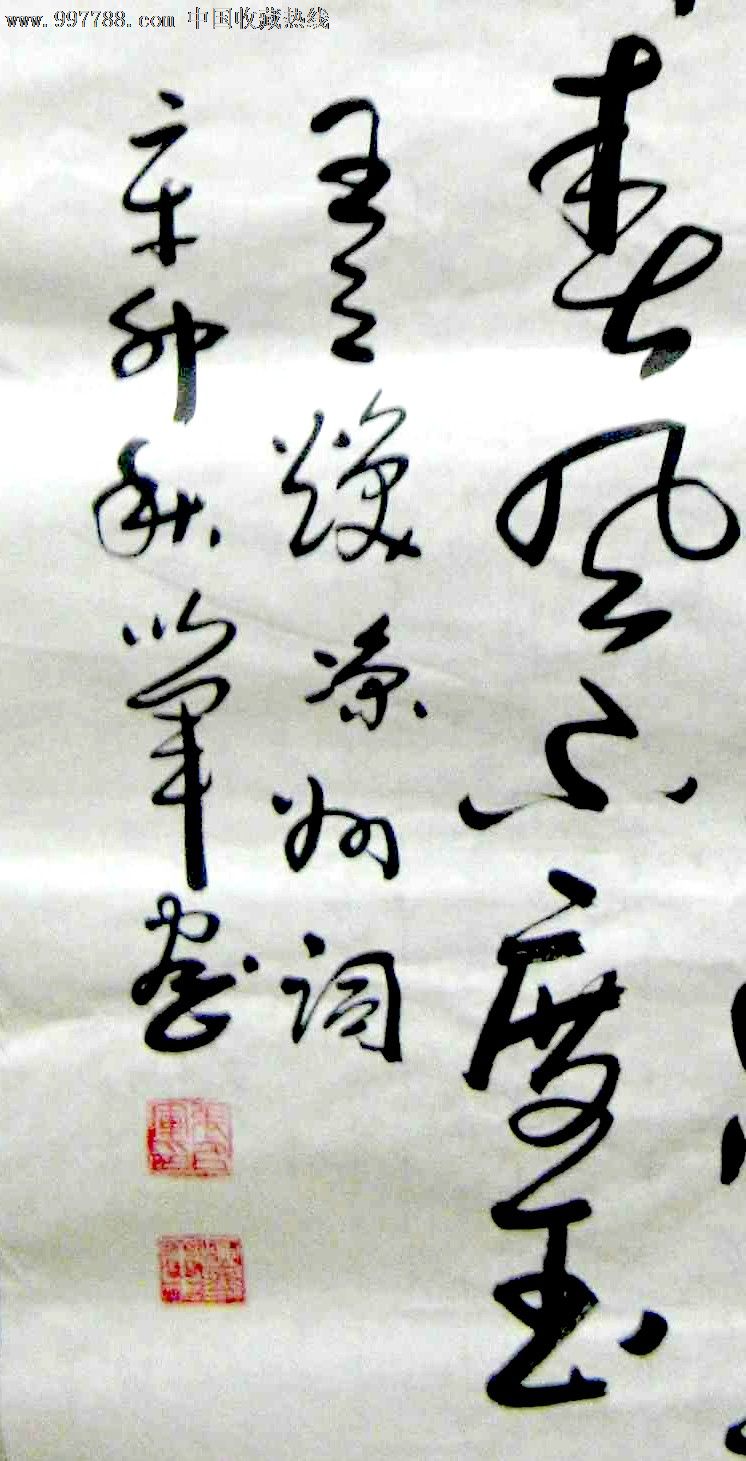 www.997788.com 中国收藏热线
春风不度玉
王之涣凉州词
辛卯秋